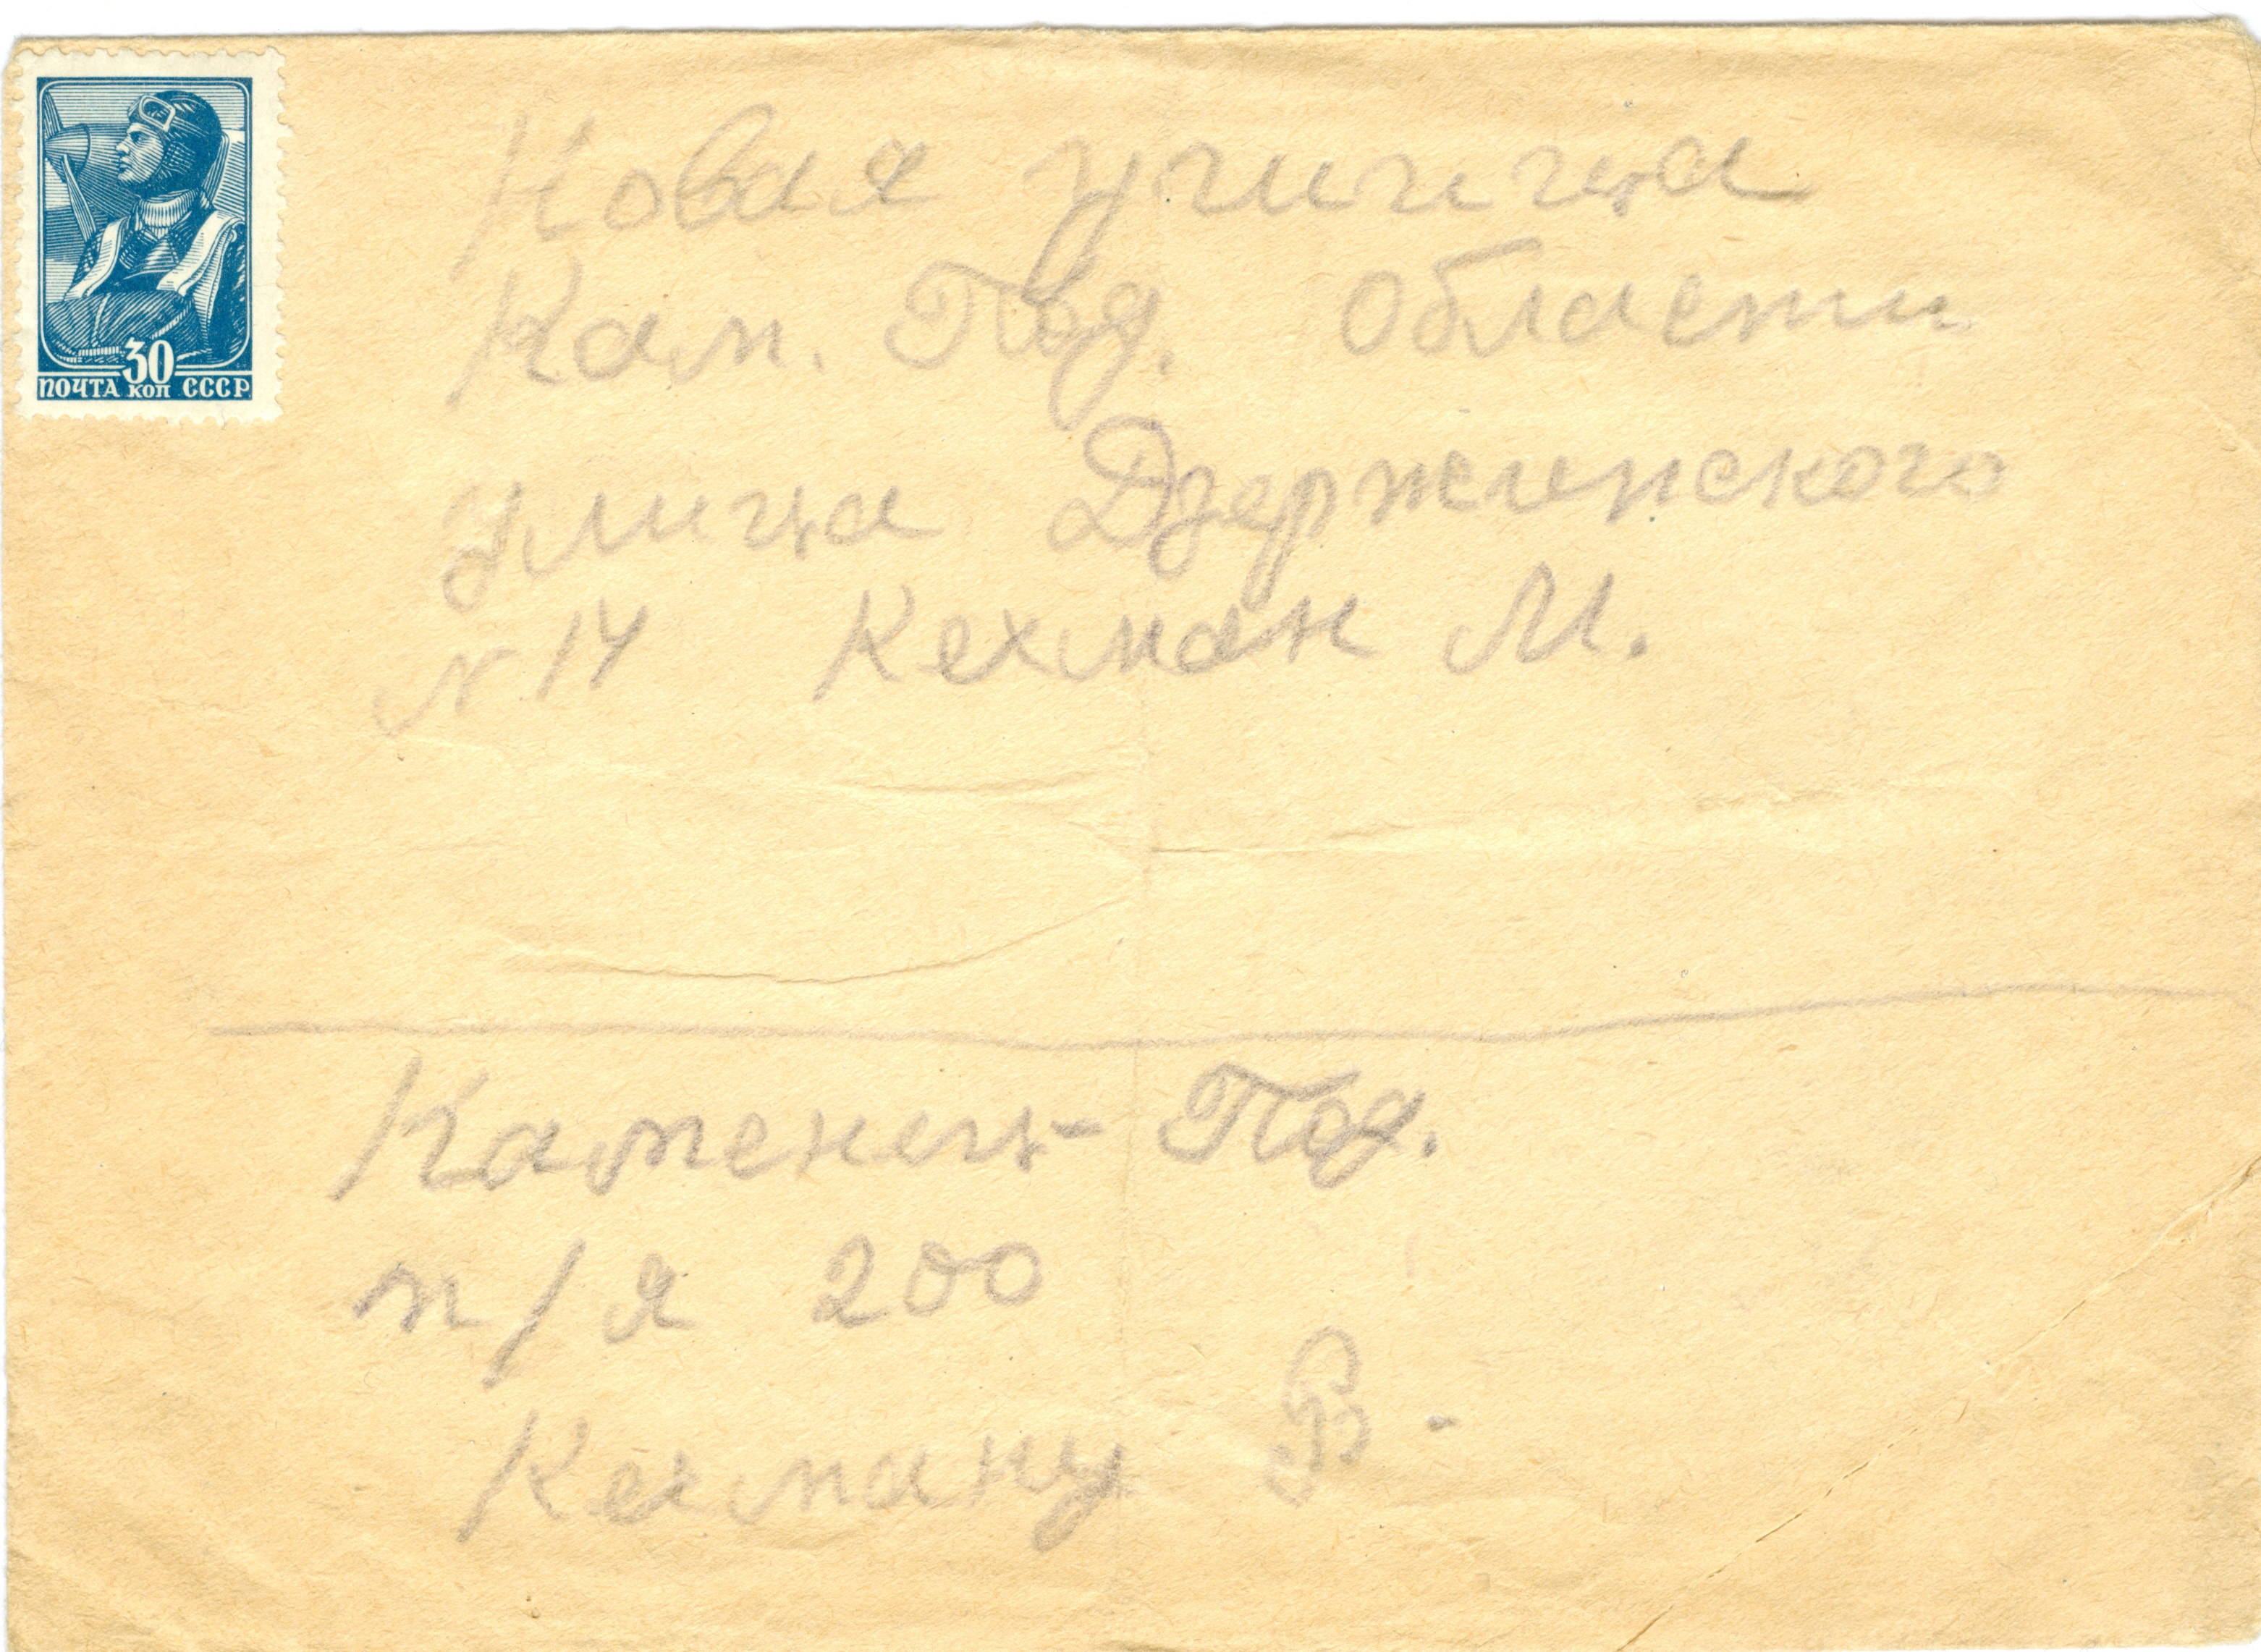 30
ПОЧТА КОП СССР
Новая Ушица
Кам. Под. Области
улица Дзержинского
N 14 Кехман М.
Каменец-Под.
п/я 200
Кехману В.